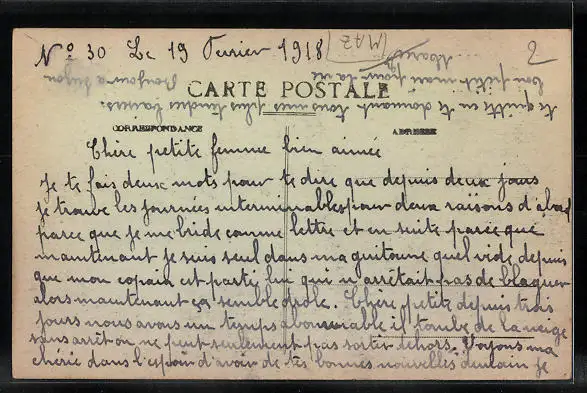 No 30 Le 19 Fevrier 1918
MAZ
2
CARTE POSTALE
CORRESPONDANCE
ADRESSE
Chère petite femme bien aimée
Je te fais deux mots pour te dire que depuis deux jours
je trouve les journées interminables pour deux raisons d'abord
parce que je me bride comme lettre et en suite parce que
maintenant je suis seul dans ma guitoune quel vide depuis
que mon copain est partie lui qui n'arrêtait pas de blaguer
alors maintenant ça semble drole. Chère petite depuis trois
jours nous avons un temps abominable il tombe de la neige
sans arrêt on ne peut seulement pas sortir dehors. Voyons ma
chérie dans l'espoir d'avoir de tes bonnes nouvelles demain je
te quitte en te donnant tous mes plus tendres baisers.
ton petit mari pour la vie
Marcel
Bonjour a